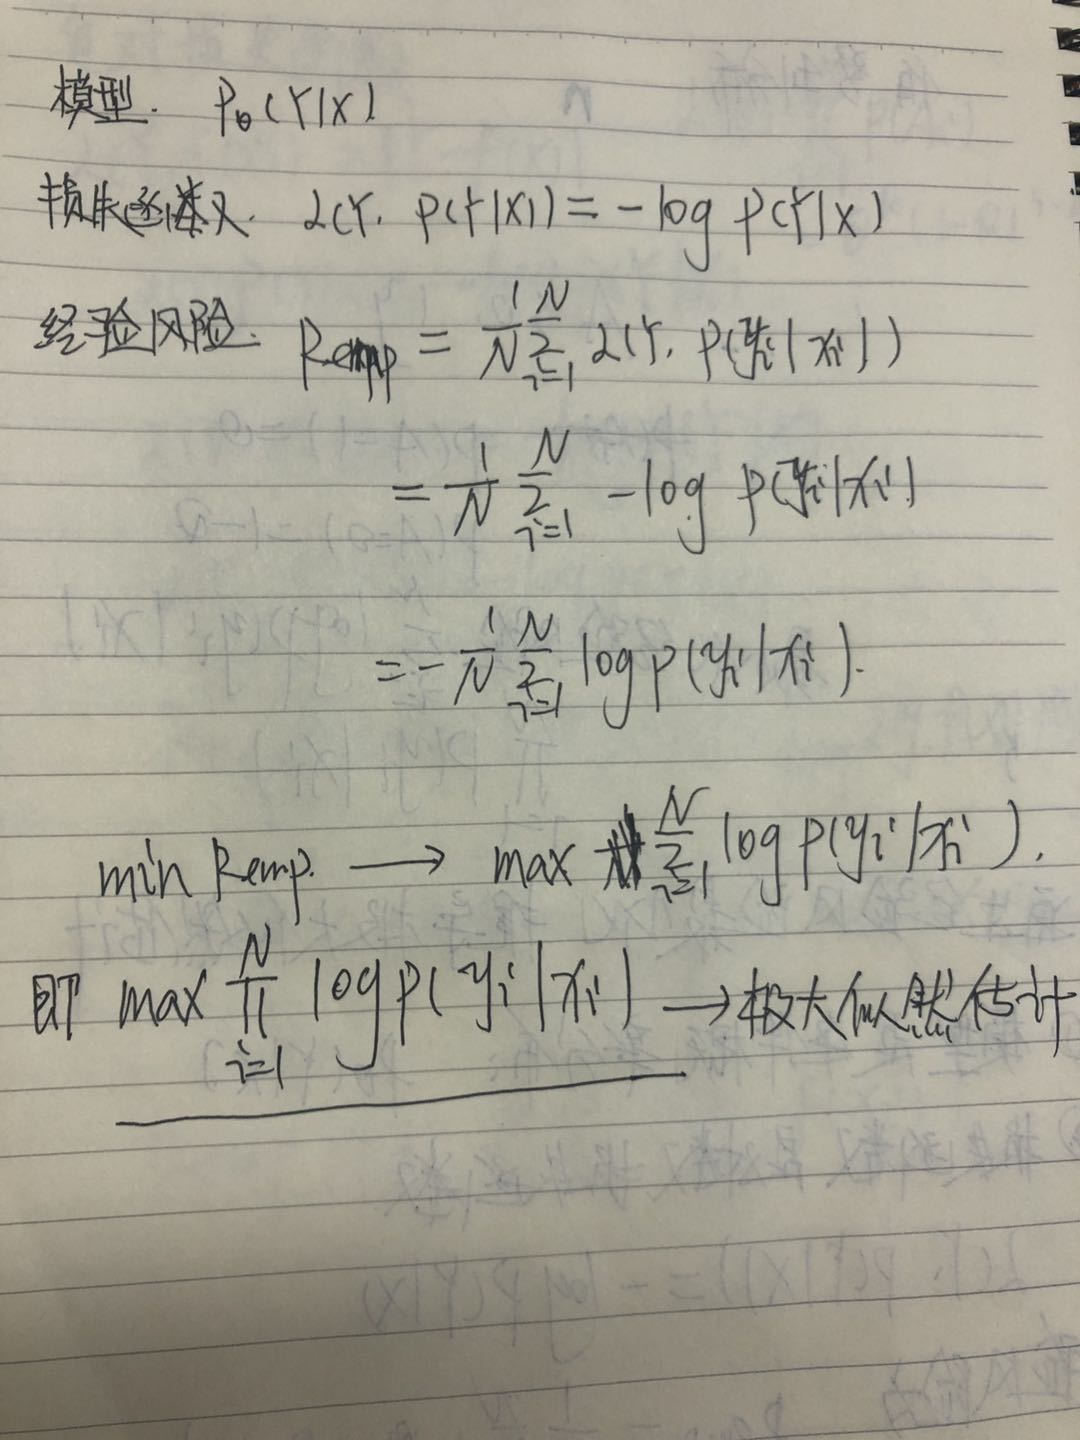 模型. Pθ(Y|X)
损失函数. L(Y, P(Y|X)) = -log P(Y|X)
经验风险. Remp = 1/N ∑_{i=1}^{N} L(Y, P(yi|xi))
= 1/N ∑_{i=1}^{N} -log P(yi|xi)
= - 1/N ∑_{i=1}^{N} log P(yi|xi).
min Remp. → max ∑_{i=1}^{N} log P(yi|xi).
即 max ∏_{i=1}^{N} log P(yi|xi) → 极大似然估计